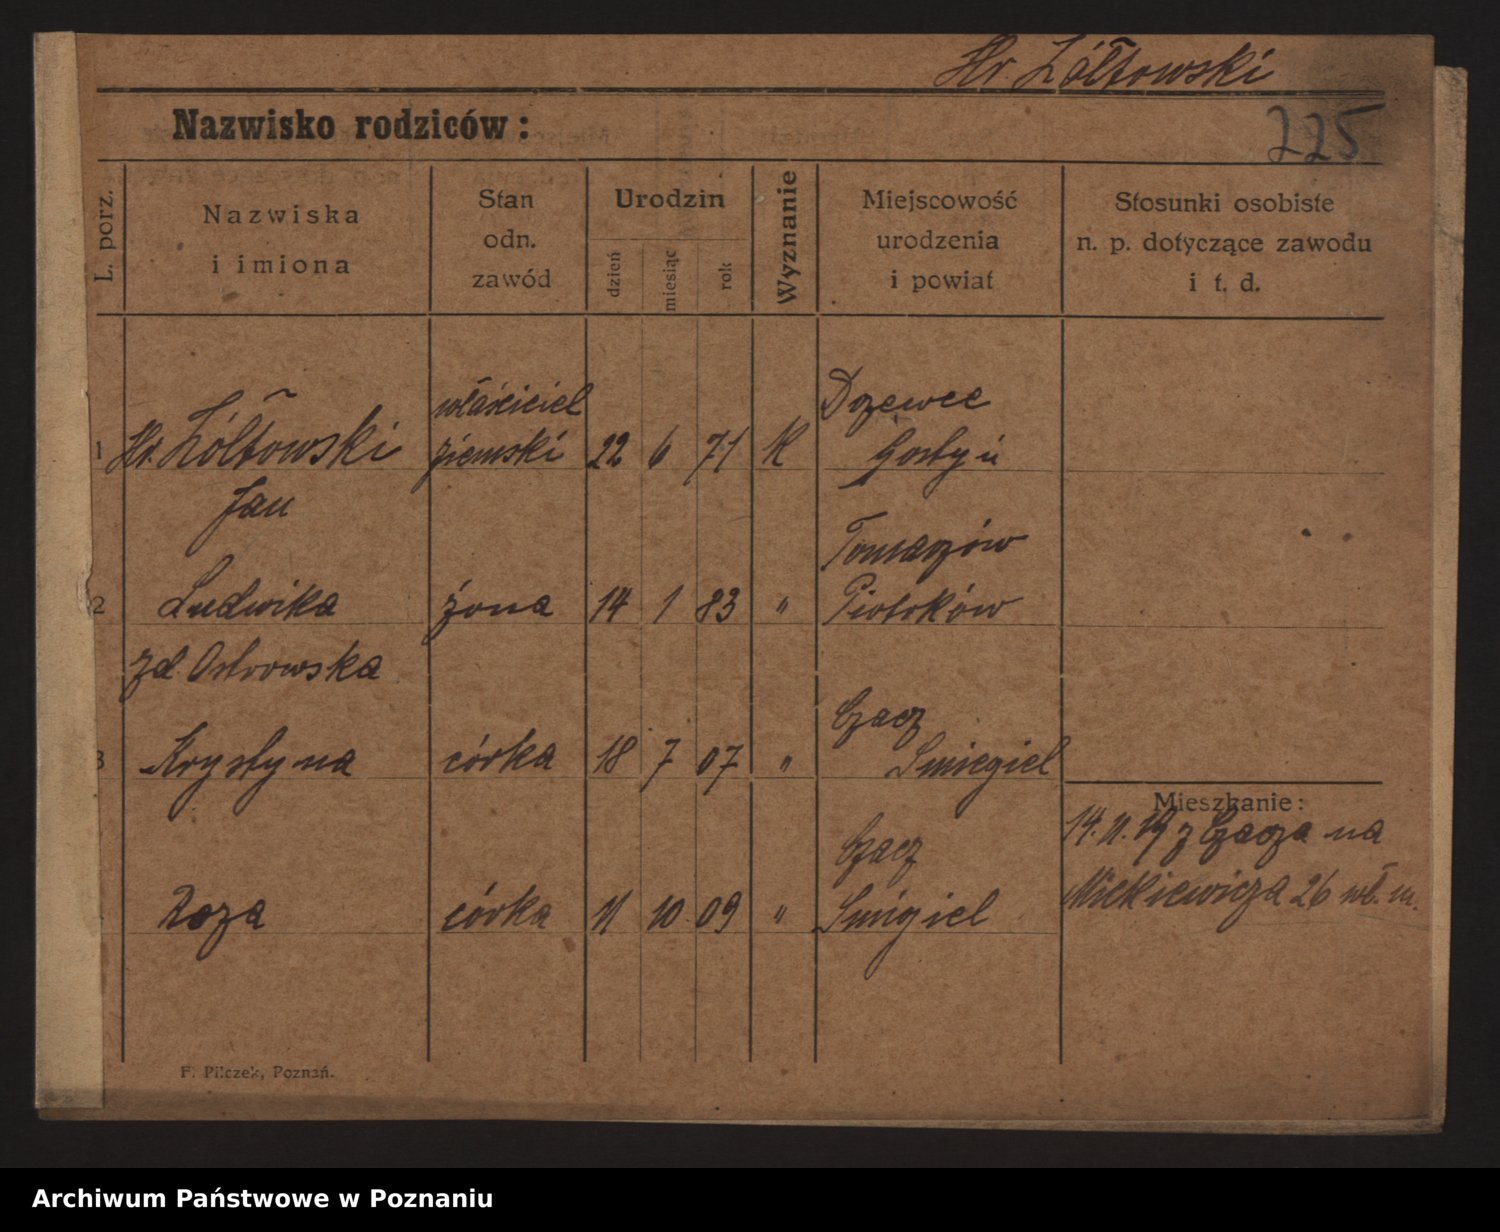 Hr. Żółtowski
Nazwisko rodziców:
225
L. porz.
Nazwiska
i imiona
Stan
odn.
zawód
Urodzin
dzień
miesiąc
rok
Wyznanie
Miejscowość
urodzenia
i powiat
Stosunki osobiste
n. p. dotyczące zawodu
i t. d.
właściciel Drzewce
1 Hr. Żółtowski ziemski 22 6 71 K Gostyń
Jan
Tomaszów
2 Ludwika żona 14 1 83 " Piotrków
zd. Ostrowska
Czacz
3 Krystyna córka 18 7 07 " Smiegiel
Mieszkanie:
14. 11. 19 z Czacza na
Czacz
Mickiewicza 26 wł. m.
Roza córka 11 10 09 " Smigiel
F. Pilczek, Poznań.
Archiwum Państwowe w Poznaniu